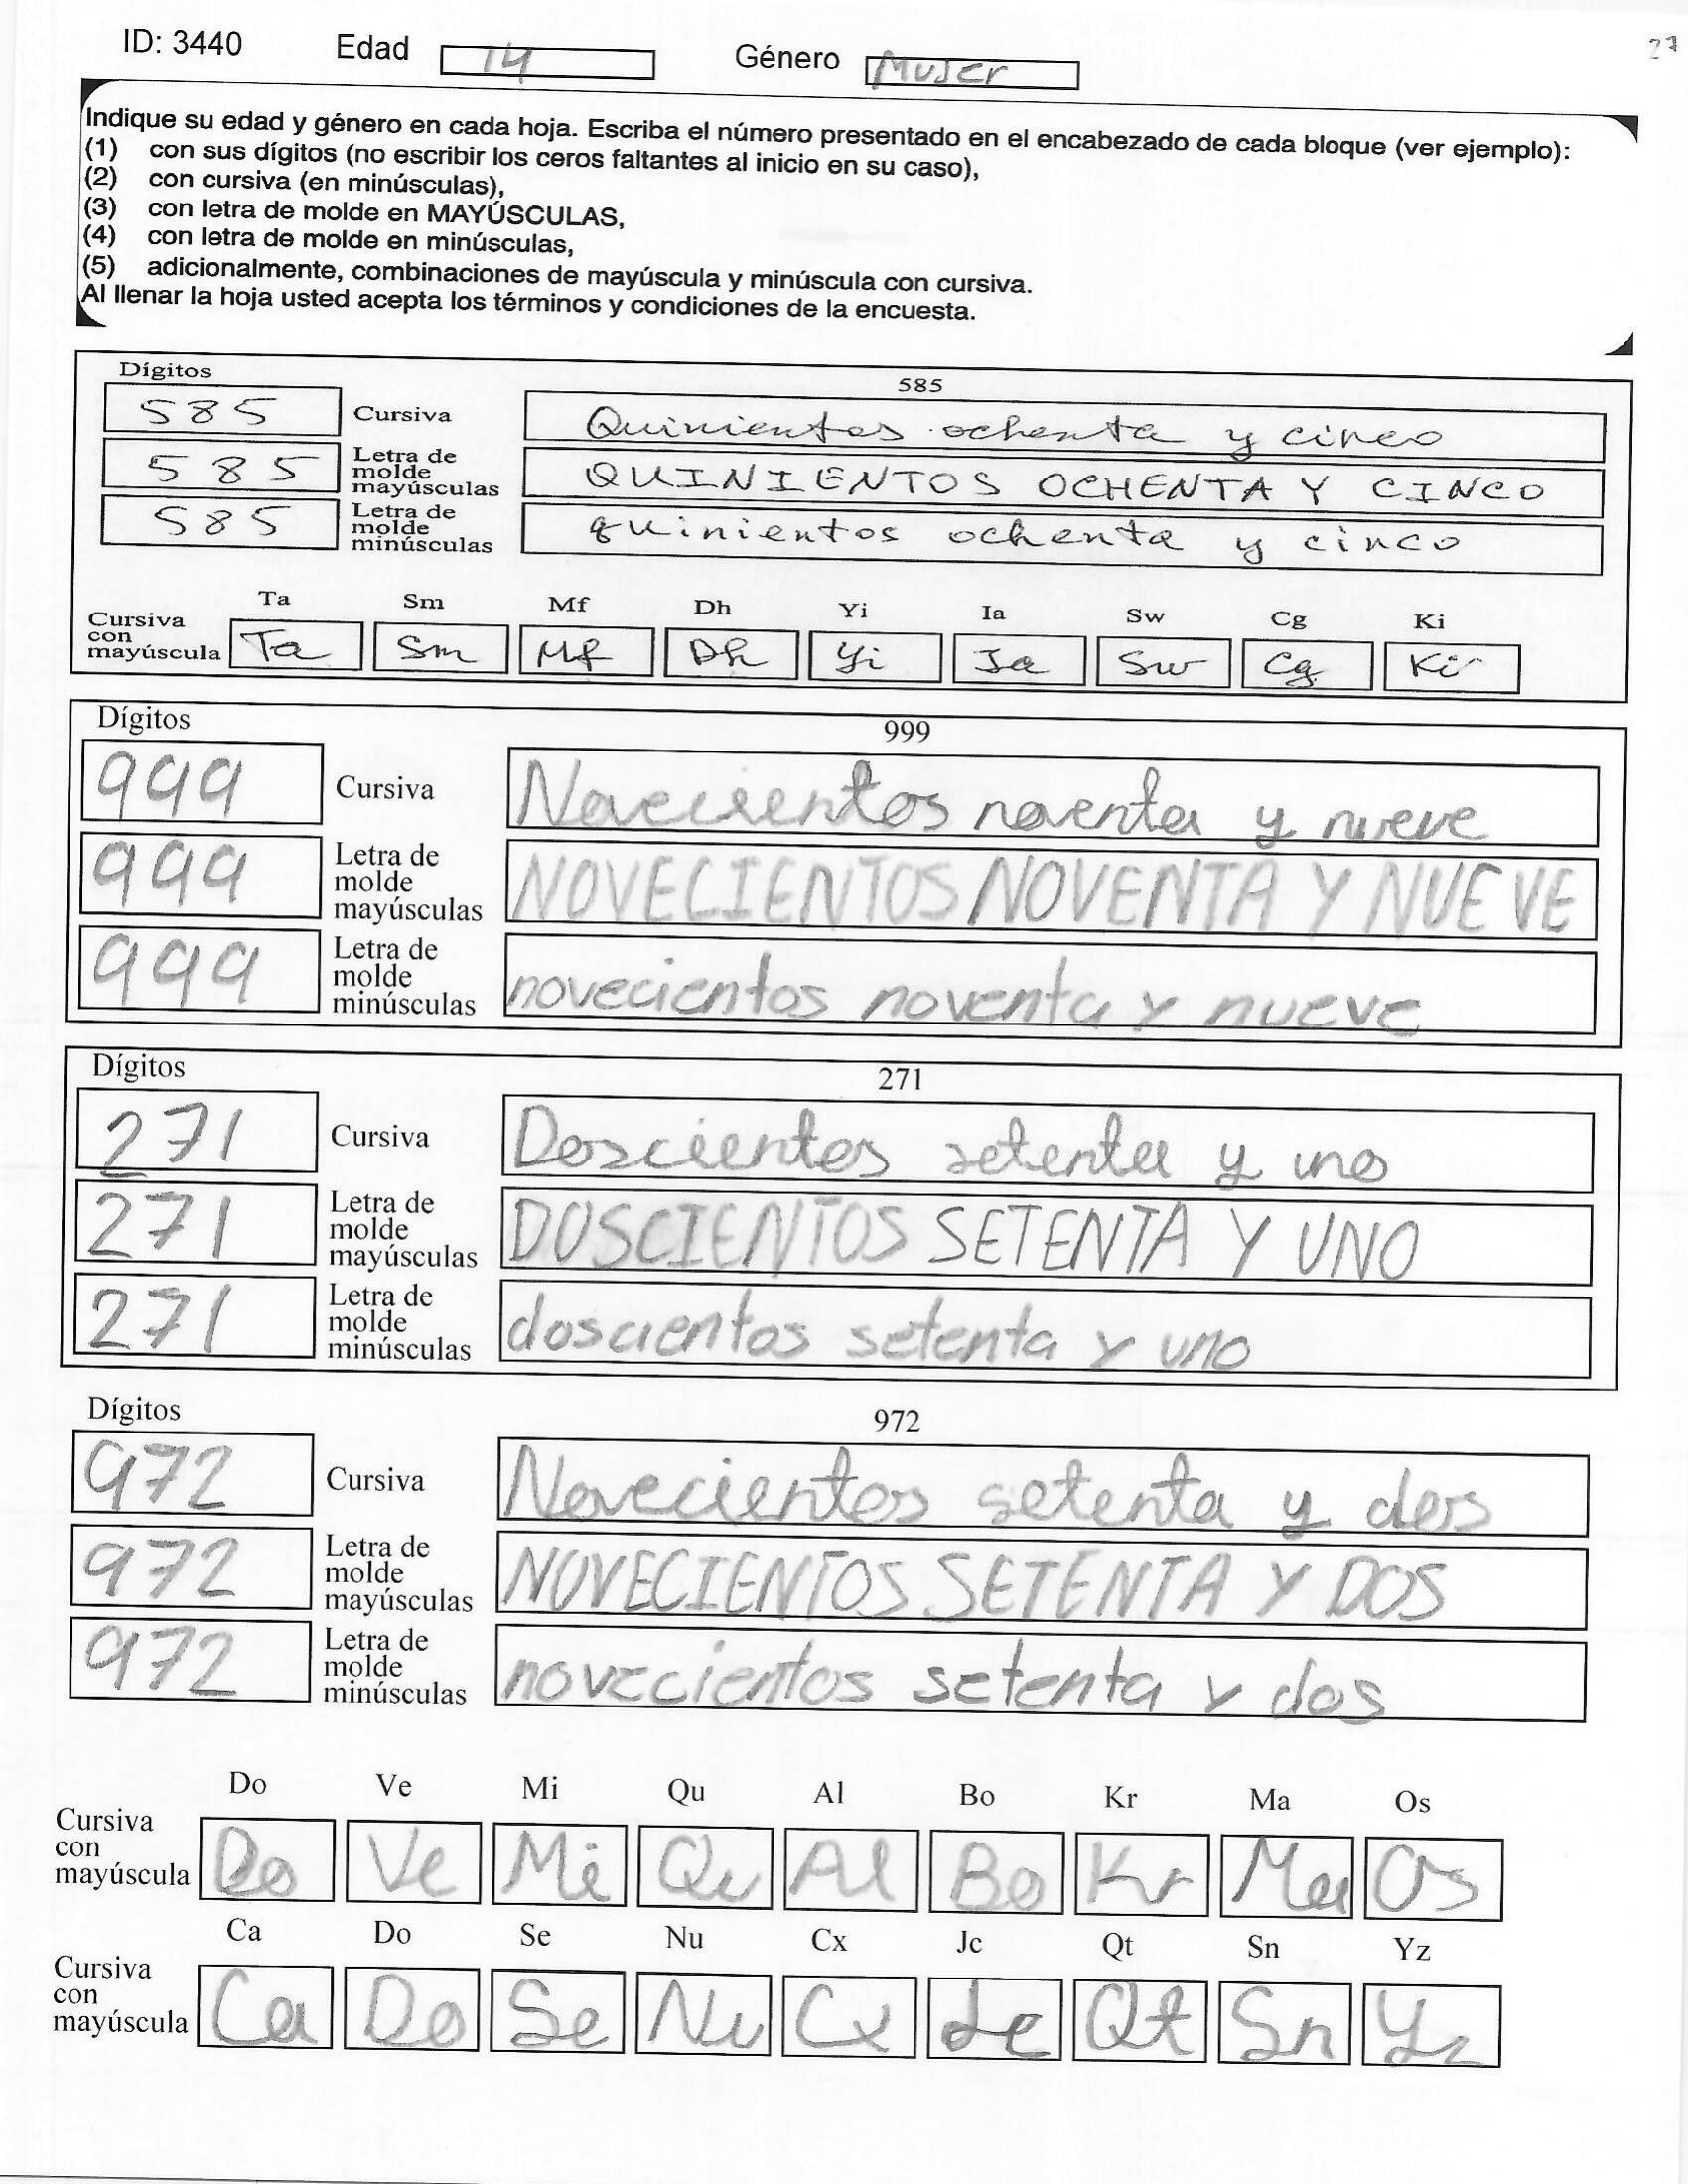 ID: 3440 Edad 14 Género Mujer 27
Indique su edad y género en cada hoja. Escriba el número presentado en el encabezado de cada bloque (ver ejemplo):
(1) con sus dígitos (no escribir los ceros faltantes al inicio en su caso),
(2) con cursiva (en minúsculas),
(3) con letra de molde en MAYÚSCULAS,
(4) con letra de molde en minúsculas,
(5) adicionalmente, combinaciones de mayúscula y minúscula con cursiva.
Al llenar la hoja usted acepta los términos y condiciones de la encuesta.
Dígitos 585
585 Cursiva Quinientos ochenta y cinco
585 Letra de molde mayúsculas QUINIENTOS OCHENTA Y CINCO
585 Letra de molde minúsculas quinientos ochenta y cinco
Ta Sm Mf Dh Yi Ia Sw Cg Ki
Cursiva con mayúscula Ta Sm Mf Dh Yi Ia Sw Cg Ki
Dígitos 999
999 Cursiva Novecientos noventa y nueve
999 Letra de molde mayúsculas NOVECIENTOS NOVENTA Y NUEVE
999 Letra de molde minúsculas novecientos noventa y nueve
Dígitos 271
271 Cursiva Doscientos setenta y uno
271 Letra de molde mayúsculas DOSCIENTOS SETENTA Y UNO
271 Letra de molde minúsculas doscientos setenta y uno
Dígitos 972
972 Cursiva Novecientos setenta y dos
972 Letra de molde mayúsculas NOVECIENTOS SETENTA Y DOS
972 Letra de molde minúsculas novecientos setenta y dos
Do Ve Mi Qu Al Bo Kr Ma Os
Cursiva con mayúscula Do Ve Mi Qu Al Bo Kr Ma Os
Ca Do Se Nu Cx Jc Qt Sn Yz
Cursiva con mayúscula Ca Do Se Nu Cx Jc Qt Sn Yz